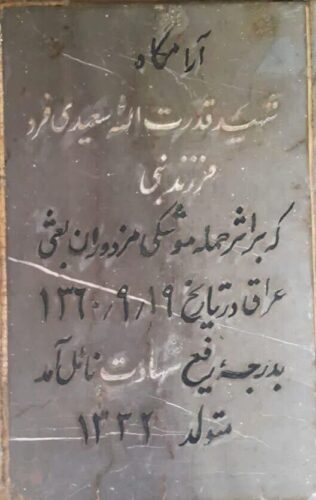 آرامگاه
شهید قدرت الله سعیدی فرد
فرزند نبی
که بر اثر حمله موشکی مزدوران بعثی
عراق در تاریخ ۱۳۶۰٫۹٫۱۹
بدرجهٔ رفیع شهادت نائل آمد
متولد ۱۳۳۲